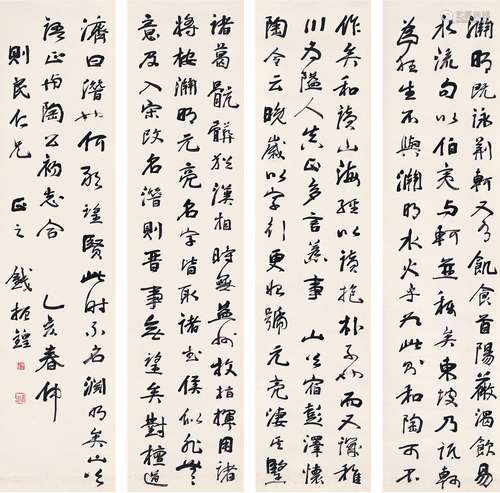 淵明既詠荆軻又有飢食首陽薇渴飲易
水流句以伯夷與軻並稱矣東坡乃詆軻
為狂生不與淵明水火乎此則和陶可不
作矣和讀山海經以讀抱朴子而又譏稚
川為隘人真正多言 山谷宿彭澤懷
陶令云晚歲以字行更始號元亮凄其望
諸葛骯髒猶漢相時無益州牧指揮用諸
將按淵明元亮名字皆取諸武侯似非無
意及入宋改名潛則晉事無望矣對檀道
濟曰潛也何敢望賢此時不名淵明矣山谷
語正與陶公初意合 乙亥春仲
則民仁兄 正之 錢振鍠